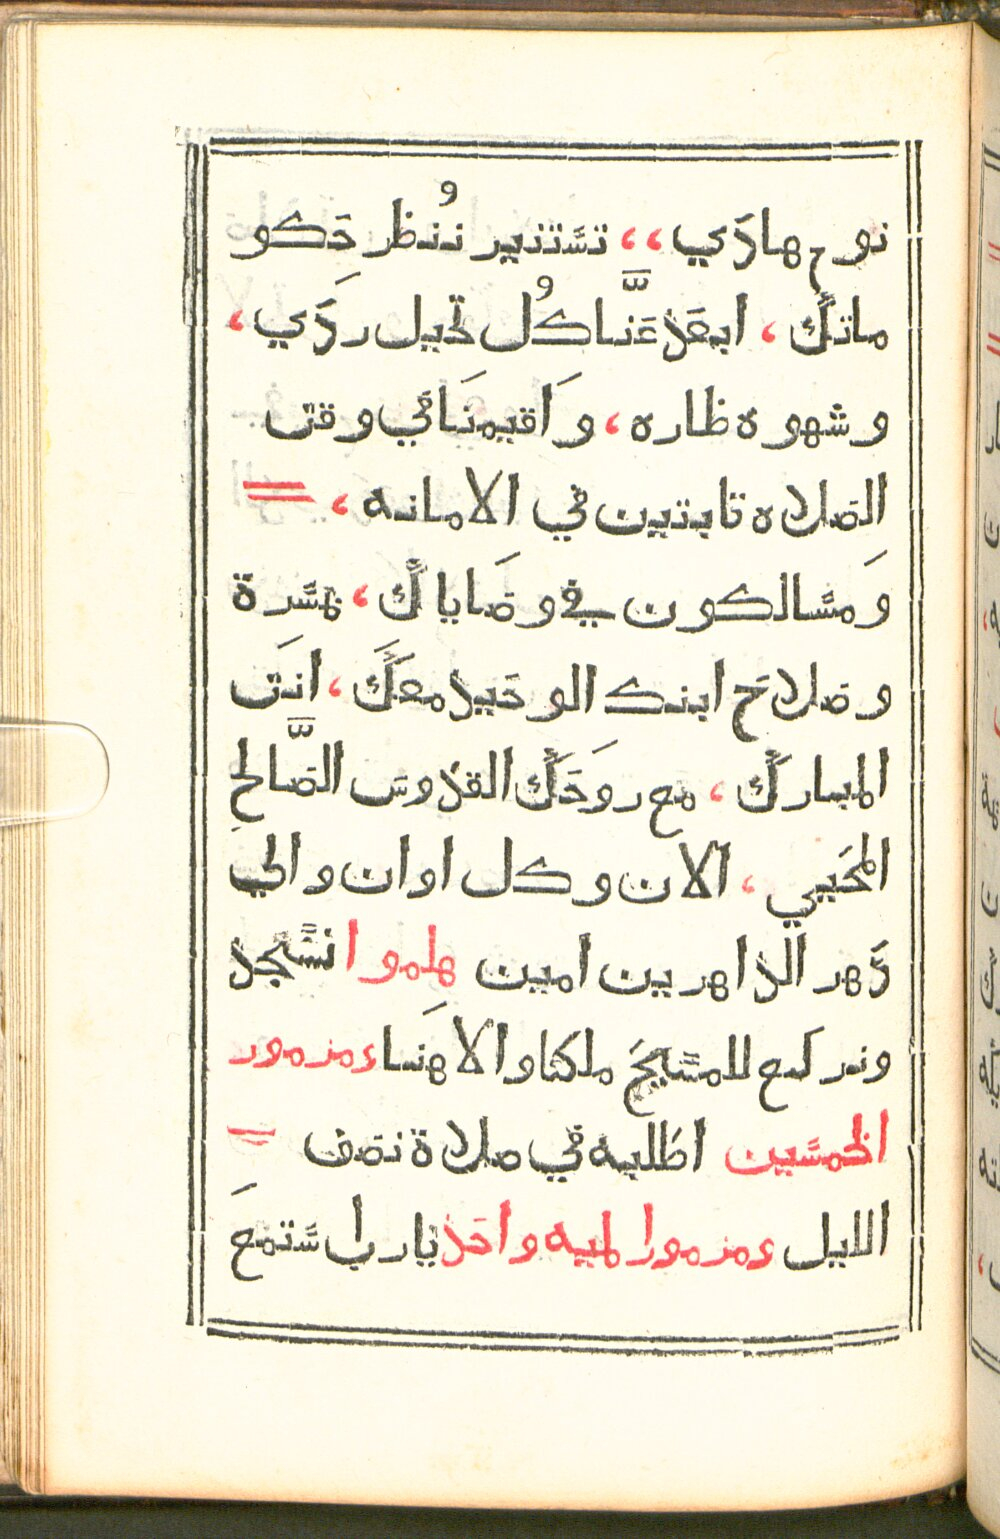 نوح هادي ،، تستنير ننظر حكو
ماتك ، ابعد عنا كل تخيل ردي ،
وشهوه ظاره ، واقيمنا في وقت
الصلاه تابتين في الامانه ،
ومسالكون في وصاياك ، بمسرة
وصلاح ابنك الوحيد معك ، انت
المبارك ، مع روحك القدوس الصالح
المحيي ، الان وكل اوان والي
دهر الداهرين امين هلموا نسجد
ونركع للمسيح ملكنا والاهنا ومزمور
الخمسين اطلبه في صلاة نصف
الليل ومزمور الميه واحد يارب استمع